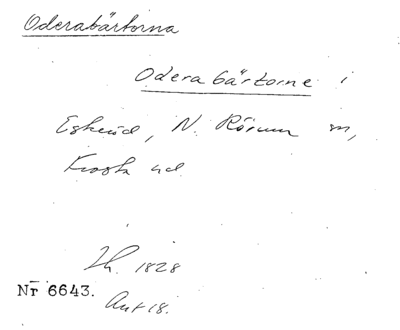 Oderabärtorna
Odera bärtorne i
Eskeröd, N. Rörum sn,
Frosta hd
Lh. 1828
Nr 6643.
Ant 18.